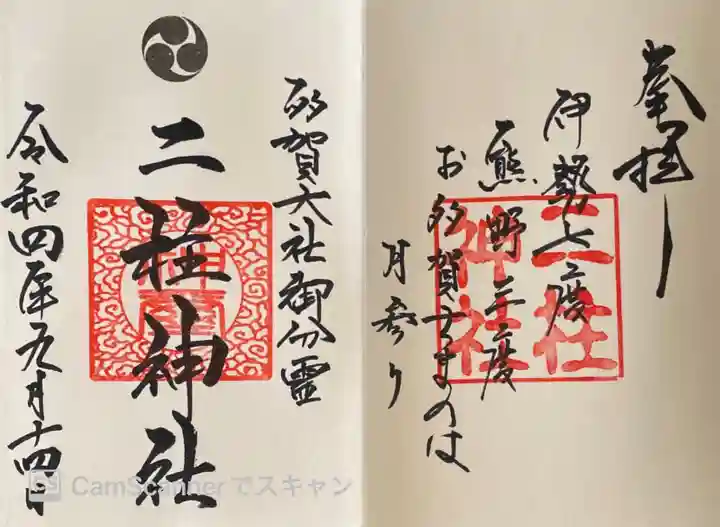 奉拝
伊勢へ七度
熊野へ三度
お多賀さまへは
月参り
二柱
神社
多賀大社御分霊
二柱神社
令和四年九月十四日
CamScannerでスキャン